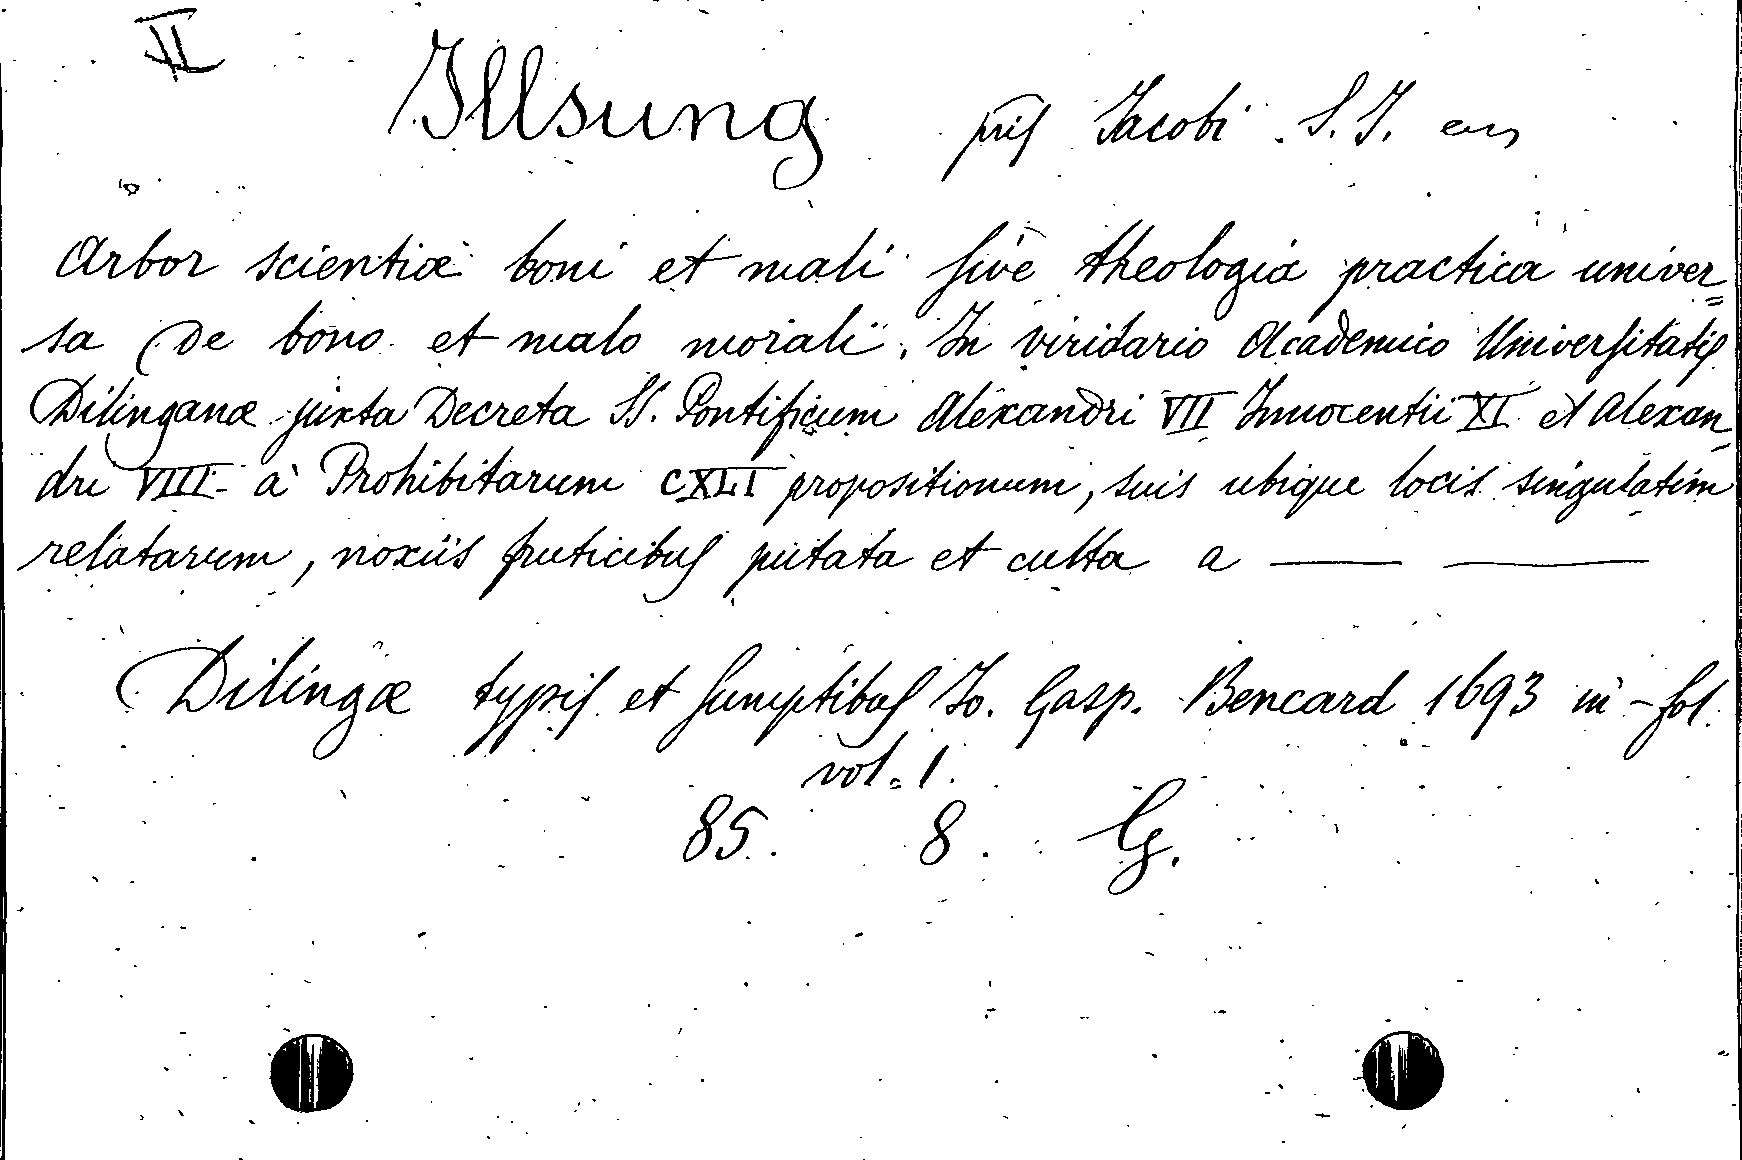 II
Illsung Jacobi S. J.
Arbor scientiæ boni et mali sive theologia practica univer=
sa de bono et malo morali. In viridario Academico Universitatis
Dilinganæ juxta Decreta SS. Pontificum Alexandri VII Innocentii XI et Alexan=
dri VIII à Prohibitarum CXLI propositionum, suis ubique locis singulatim
relatarum, noxiis fruticibus putata et culta a — —
Dilingæ typis et sumptibus Jo. Gasp. Bencard 1693 in-fol.
vol. 1.
85. 8. G.